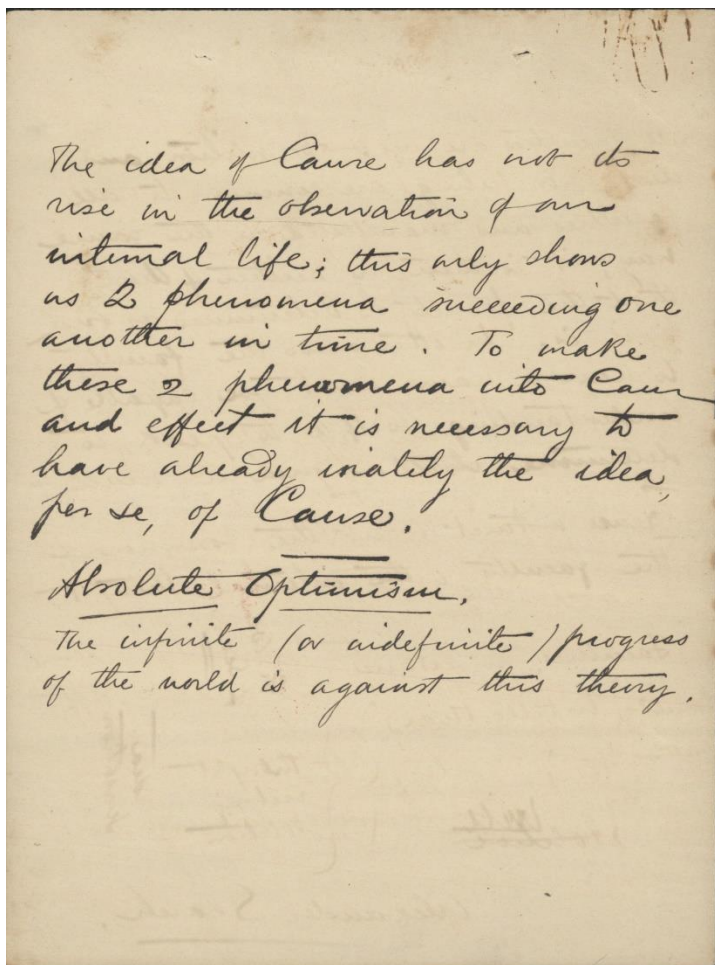 The idea of Cause has not its
rise in the observation of our
internal life; this only shows
us 2 phenomena succeeding one
another in time. To make
these 2 phenomena into Cause
and effect it is necessary to
have already inately the idea,
per se, of Cause.
Absolute Optimism.
The infinite (or indefinite) progress
of the world is against this theory.